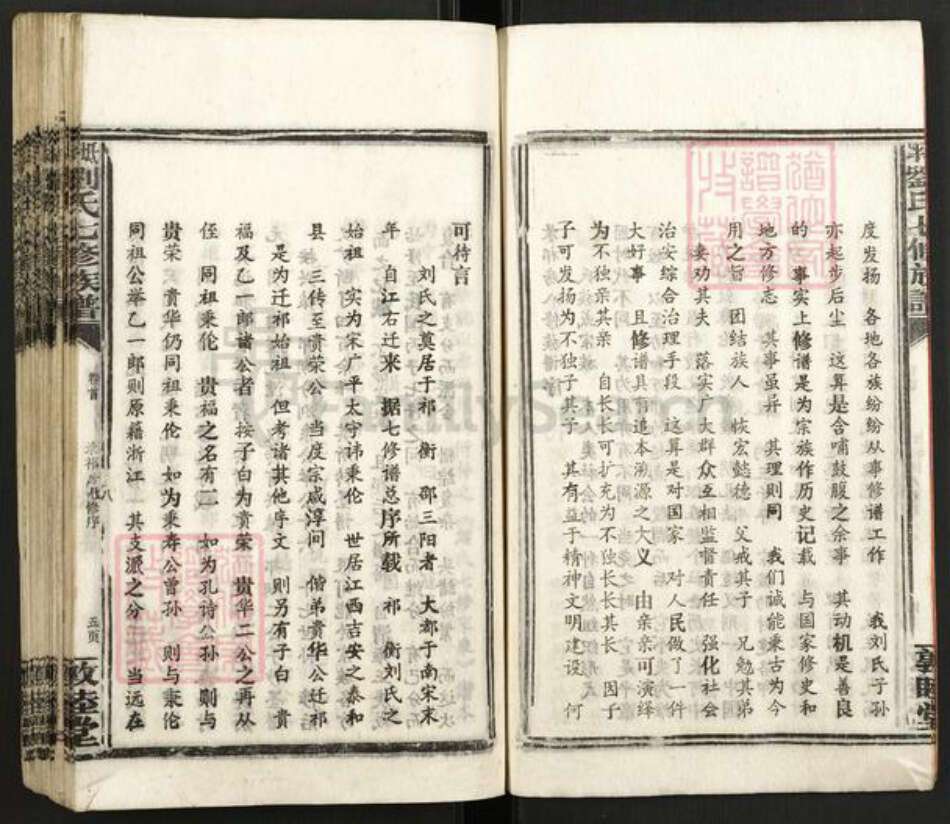 度发扬 各地各族纷纷从事修谱工作 我刘氏子孙
亦起步后尘 这算是含哺鼓腹之余事 其动机是善良
的 事实上修谱是为宗族作历史记载 与国家修史和
地方修志 其事虽异 其理则同 我们诚能秉古为今
用之旨 团结族人 恢宏懿德 父戒其子 兄勉其弟
妻劝其夫 落实广大群众互相监督责任 强化社会
治安综合治理手段 这算是对国家 对人民做了一件
大好事 且修谱具有追本溯源之大义 由亲亲可演绎
为不独亲其亲 自长长可扩充为不独长长其长 因子
子可发扬为不独子子其子 其有益于精神文明建设 何
可待言
刘氏之奠居于祁 衡 邵三阳者 大都于南宋末
年 自江右迁来 据七修谱总序所载 祁 衡刘氏之
始祖 实为宋广平太守讳秉伦 世居江西吉安之泰和
县 三传至贵荣公 当度宗咸淳间 偕弟贵华公迁祁
是为迁祁始祖 但考诸其他序文 则另有子白 贵
福及乙一郎诸公者 按子白为贵荣 贵华二公之再从
侄 同祖秉伦 贵福之名有二 如为孔诗公孙 则与
贵荣 贵华仍同祖秉伦 如为秉 公曾孙 则与秉伦
同祖公举 乙一郎则原籍浙江 其支派之分 当远在
劉氏七修族譜
卷首
八修序
八
五页
敦睦堂
劉氏七修族譜
敦睦堂
FamilySearch